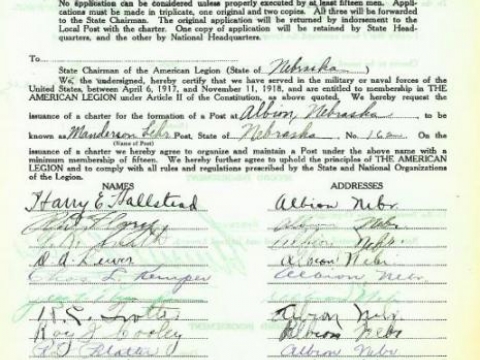 No application can be considered unless properly executed by at least fifteen men. Appli-
cations must be made in triplicate, one original and two copies. All three will be forwarded
to the State Chairman. The original application will be returned by indorsement to the
Local Post with the charter. One copy of application will be retained by State Head-
quarters, and the other by National Headquarters.
To
State Chairman of the American Legion (State of Nebraska)
We, the undersigned, hereby certify that we have served in the military or naval forces of the
United States, between April 6, 1917, and November 11, 1918, and are entitled to membership in THE
AMERICAN LEGION under Article II of the Constitution, as above quoted. We hereby request the
issuance of a charter for the formation of a Post at Albion, Nebraska, to be
known as Manderson Lehr Post, State of Nebraska No. 162 On the
(Name of Post)
issuance of a charter we hereby agree to organize and maintain a Post under the above name with a
minimum membership of fifteen. We hereby further agree to uphold the principles of THE AMERICAN
LEGION and to comply with all rules and regulations prescribed by the State and National Organizations
of the Legion.
NAMES ADDRESSES
Harry E Hallstead Albion Nebr.
Nebr
Albion Nebr.
D. A. Lewis Albion Nebr
Chas L. Kemper Albion, Nebr.
Albion Nebr
Roy Cooley Albion Nebr
Albion Nebr